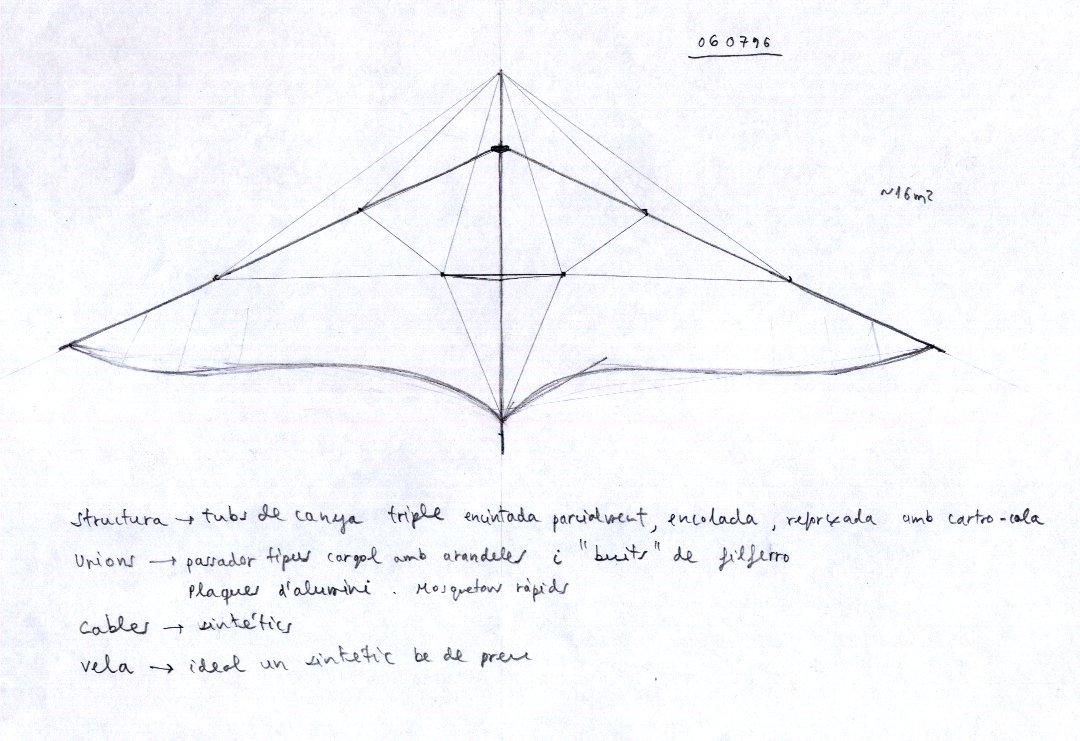 060796
~16m²
structura → tubs de canya triple encintada parcialment, encolada, reforçada amb cartro-cola
Unions → passador tipus cargol amb arandeles i "buits" de filferro
Plaques d'alumini. Mosquetons ràpids
cables → sintétics
vela → ideal un sintetic be de preu